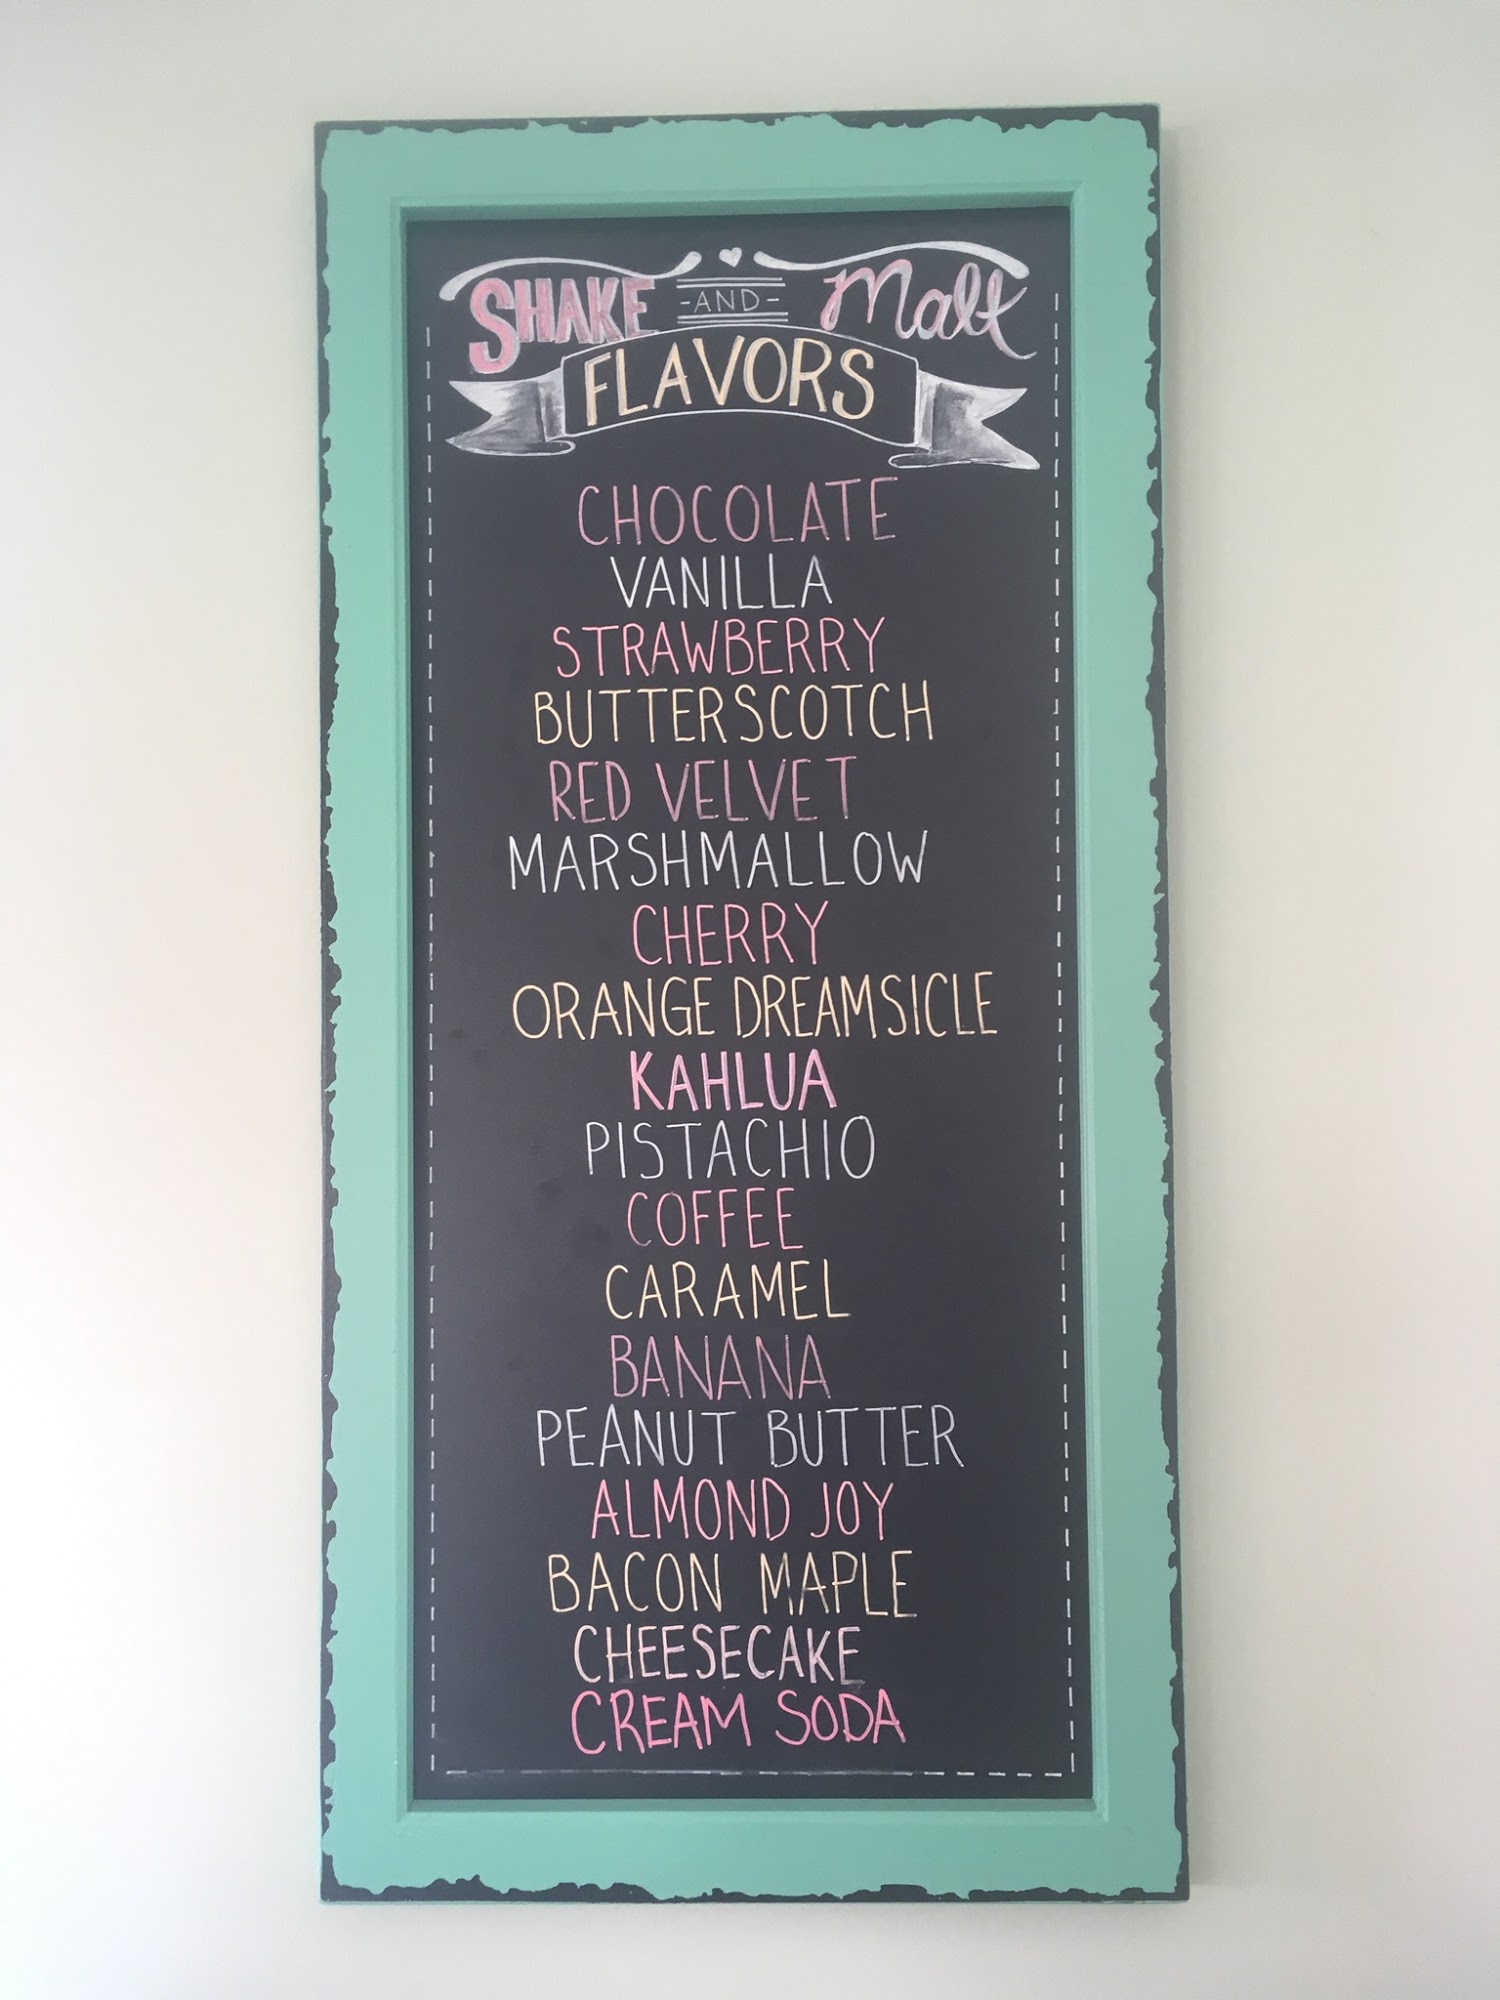 SHAKE -AND- Malt
FLAVORS
CHOCOLATE
VANILLA
STRAWBERRY
BUTTERSCOTCH
RED VELVET
MARSHMALLOW
CHERRY
ORANGE DREAMSICLE
KAHLUA
PISTACHIO
COFFEE
CARAMEL
BANANA
PEANUT BUTTER
ALMOND JOY
BACON MAPLE
CHEESECAKE
CREAM SODA